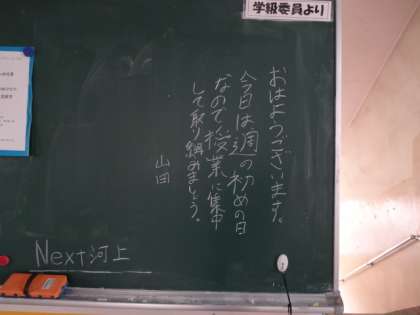 学級委員より
おはようございます。
今日は週の初めの日
なので授業に集中
して取り組めましょう。
山田
Next 河上